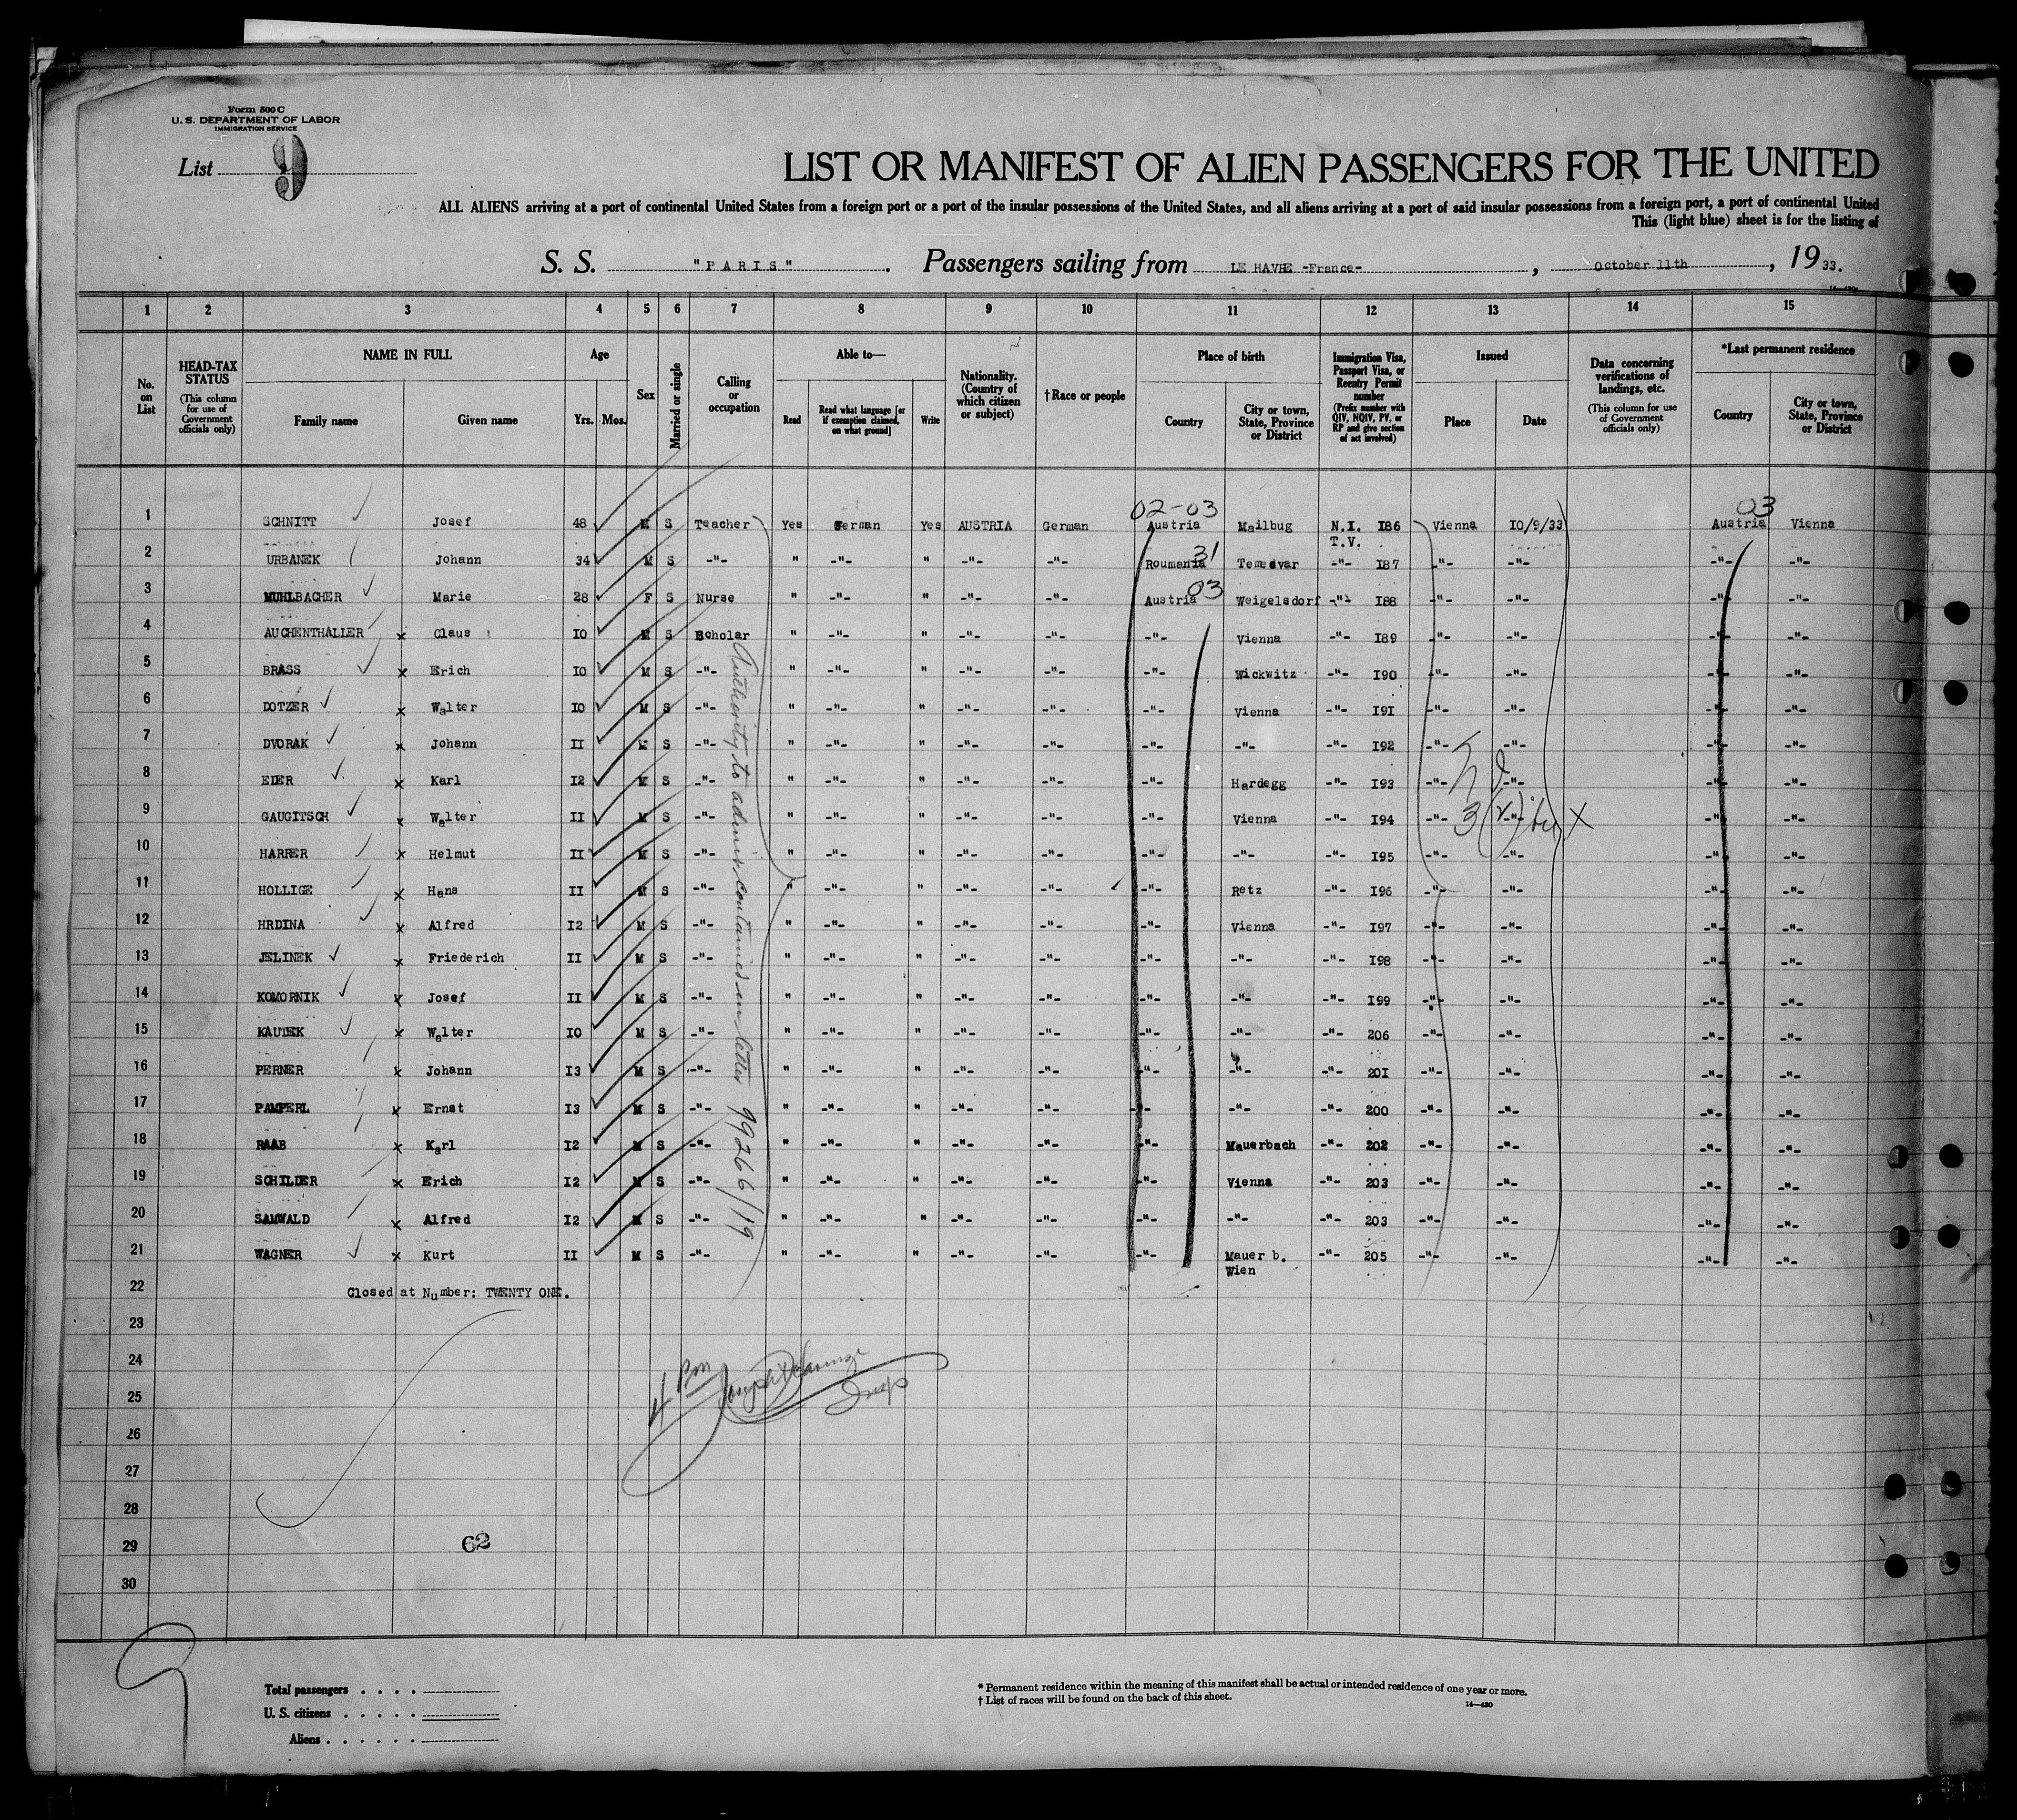 Form 500 C
U. S. DEPARTMENT OF LABOR
IMMIGRATION SERVICE
List 9
LIST OR MANIFEST OF ALIEN PASSENGERS FOR THE UNITED
ALL ALIENS arriving at a port of continental United States from a foreign port or a port of the insular possessions of the United States, and all aliens arriving at a port of said insular possessions from a foreign port, a port of continental United
This (light blue) sheet is for the listing of
S. S. "PARIS". Passengers sailing from LE HAVRE -France-, October 11th, 1933.
1 2 3 4 5 6 7 8 9 10 11 12 13 14 15
No. on List
HEAD-TAX STATUS (This column for use of Government officials only)
NAME IN FULL
Family name Given name
Age
Yrs. Mos.
Sex
Married or single
Calling or occupation
Able to—
Read
Read what language [or if exemption claimed, on what ground]
Write
Nationality. (Country of which citizen or subject)
†Race or people
Place of birth
Country
City or town, State, Province or District
Immigration Visa, Passport Visa, or Reentry Permit number (Prefix number with QIV, NQIV, PV, or RP and give section of act involved)
Issued
Place Date
Data concerning verifications of landings, etc. (This column for use of Government officials only)
*Last permanent residence
Country
City or town, State, Province or District
02-03 03
1 SCHNITT Josef 48 M S Teacher Yes German Yes AUSTRIA German Austria Mailbug N.I. I86 Vienna I0/9/33 Austria Vienna
T.V.
31
2 URBANEK Johann 34 M S -"- " -"- " -"- -"- Roumania Temesvar -"- I87 -"- -"- -"- -"-
03
3 MUHLBACHER Marie 28 F S Nurse " -"- " -"- -"- Austria Weigelsdorf -"- I88 -"- -"- -"- -"-
4 AUCHENTHALLER x Claus I0 M S Scholar " -"- " -"- -"- -"- Vienna -"- I89 -"- -"- -"- -"-
5 BRASS x Erich I0 M S -"- " -"- " -"- -"- -"- Wickwitz -"- I90 -"- -"- -"- -"-
6 DOTZER x Walter I0 M S -"- " -"- " -"- -"- -"- Vienna -"- I9I -"- -"- -"- -"-
7 DVORAK x Johann II M S -"- " -"- " -"- -"- -"- -"- -"- I92 -"- -"- -"- -"-
8 EDER x Karl I2 M S -"- " -"- " -"- -"- -"- Hardegg -"- I93 -"- -"- -"- -"-
9 GAUGITSCH x Walter II M S -"- " -"- " -"- -"- -"- Vienna -"- I94 -"- -"- -"- -"-
10 HARRER x Helmut II M S -"- " -"- " -"- -"- -"- -"- -"- I95 -"- -"- -"- -"-
11 HOLLIGE x Hans II M S -"- " -"- " -"- -"- -"- Retz -"- I96 -"- -"- -"- -"-
12 HRDINA x Alfred I2 M S -"- " -"- " -"- -"- -"- Vienna -"- I97 -"- -"- -"- -"-
13 JELINEK x Friederich II M S -"- " -"- " -"- -"- -"- -"- -"- I98 -"- -"- -"- -"-
14 KOMORNIK x Josef II M S -"- " -"- " -"- -"- -"- -"- -"- I99 -"- -"- -"- -"-
15 KAUTEK x Walter I0 M S -"- " -"- " -"- -"- -"- -"- -"- 206 -"- -"- -"- -"-
16 PERNER x Johann I3 M S -"- " -"- " -"- -"- -"- -"- -"- 20I -"- -"- -"- -"-
17 PAMPERL x Ernst I3 M S -"- " -"- " -"- -"- -"- -"- -"- 200 -"- -"- -"- -"-
18 RAAB x Karl I2 M S -"- " -"- " -"- -"- -"- Mauerbach -"- 202 -"- -"- -"- -"-
19 SCHILDER x Erich I2 M S -"- " -"- " -"- -"- -"- Vienna -"- 203 -"- -"- -"- -"-
20 SAMWALD x Alfred I2 M S -"- " -"- " -"- -"- -"- -"- -"- 203 -"- -"- -"- -"-
21 WAGNER x Kurt II M S -"- " -"- " -"- -"- -"- Mauer b. -"- 205 -"- -"- -"- -"-
Wien
Authority to admit contained in letter 99266/19
22 Closed at Number: TWENTY ONE.
23
24
25
26
27
28
29
30
4 PM
Insp
62
9
Total passengers
U. S. citizens
Aliens
* Permanent residence within the meaning of this manifest shall be actual or intended residence of one year or more.
† List of races will be found on the back of this sheet.
14—430